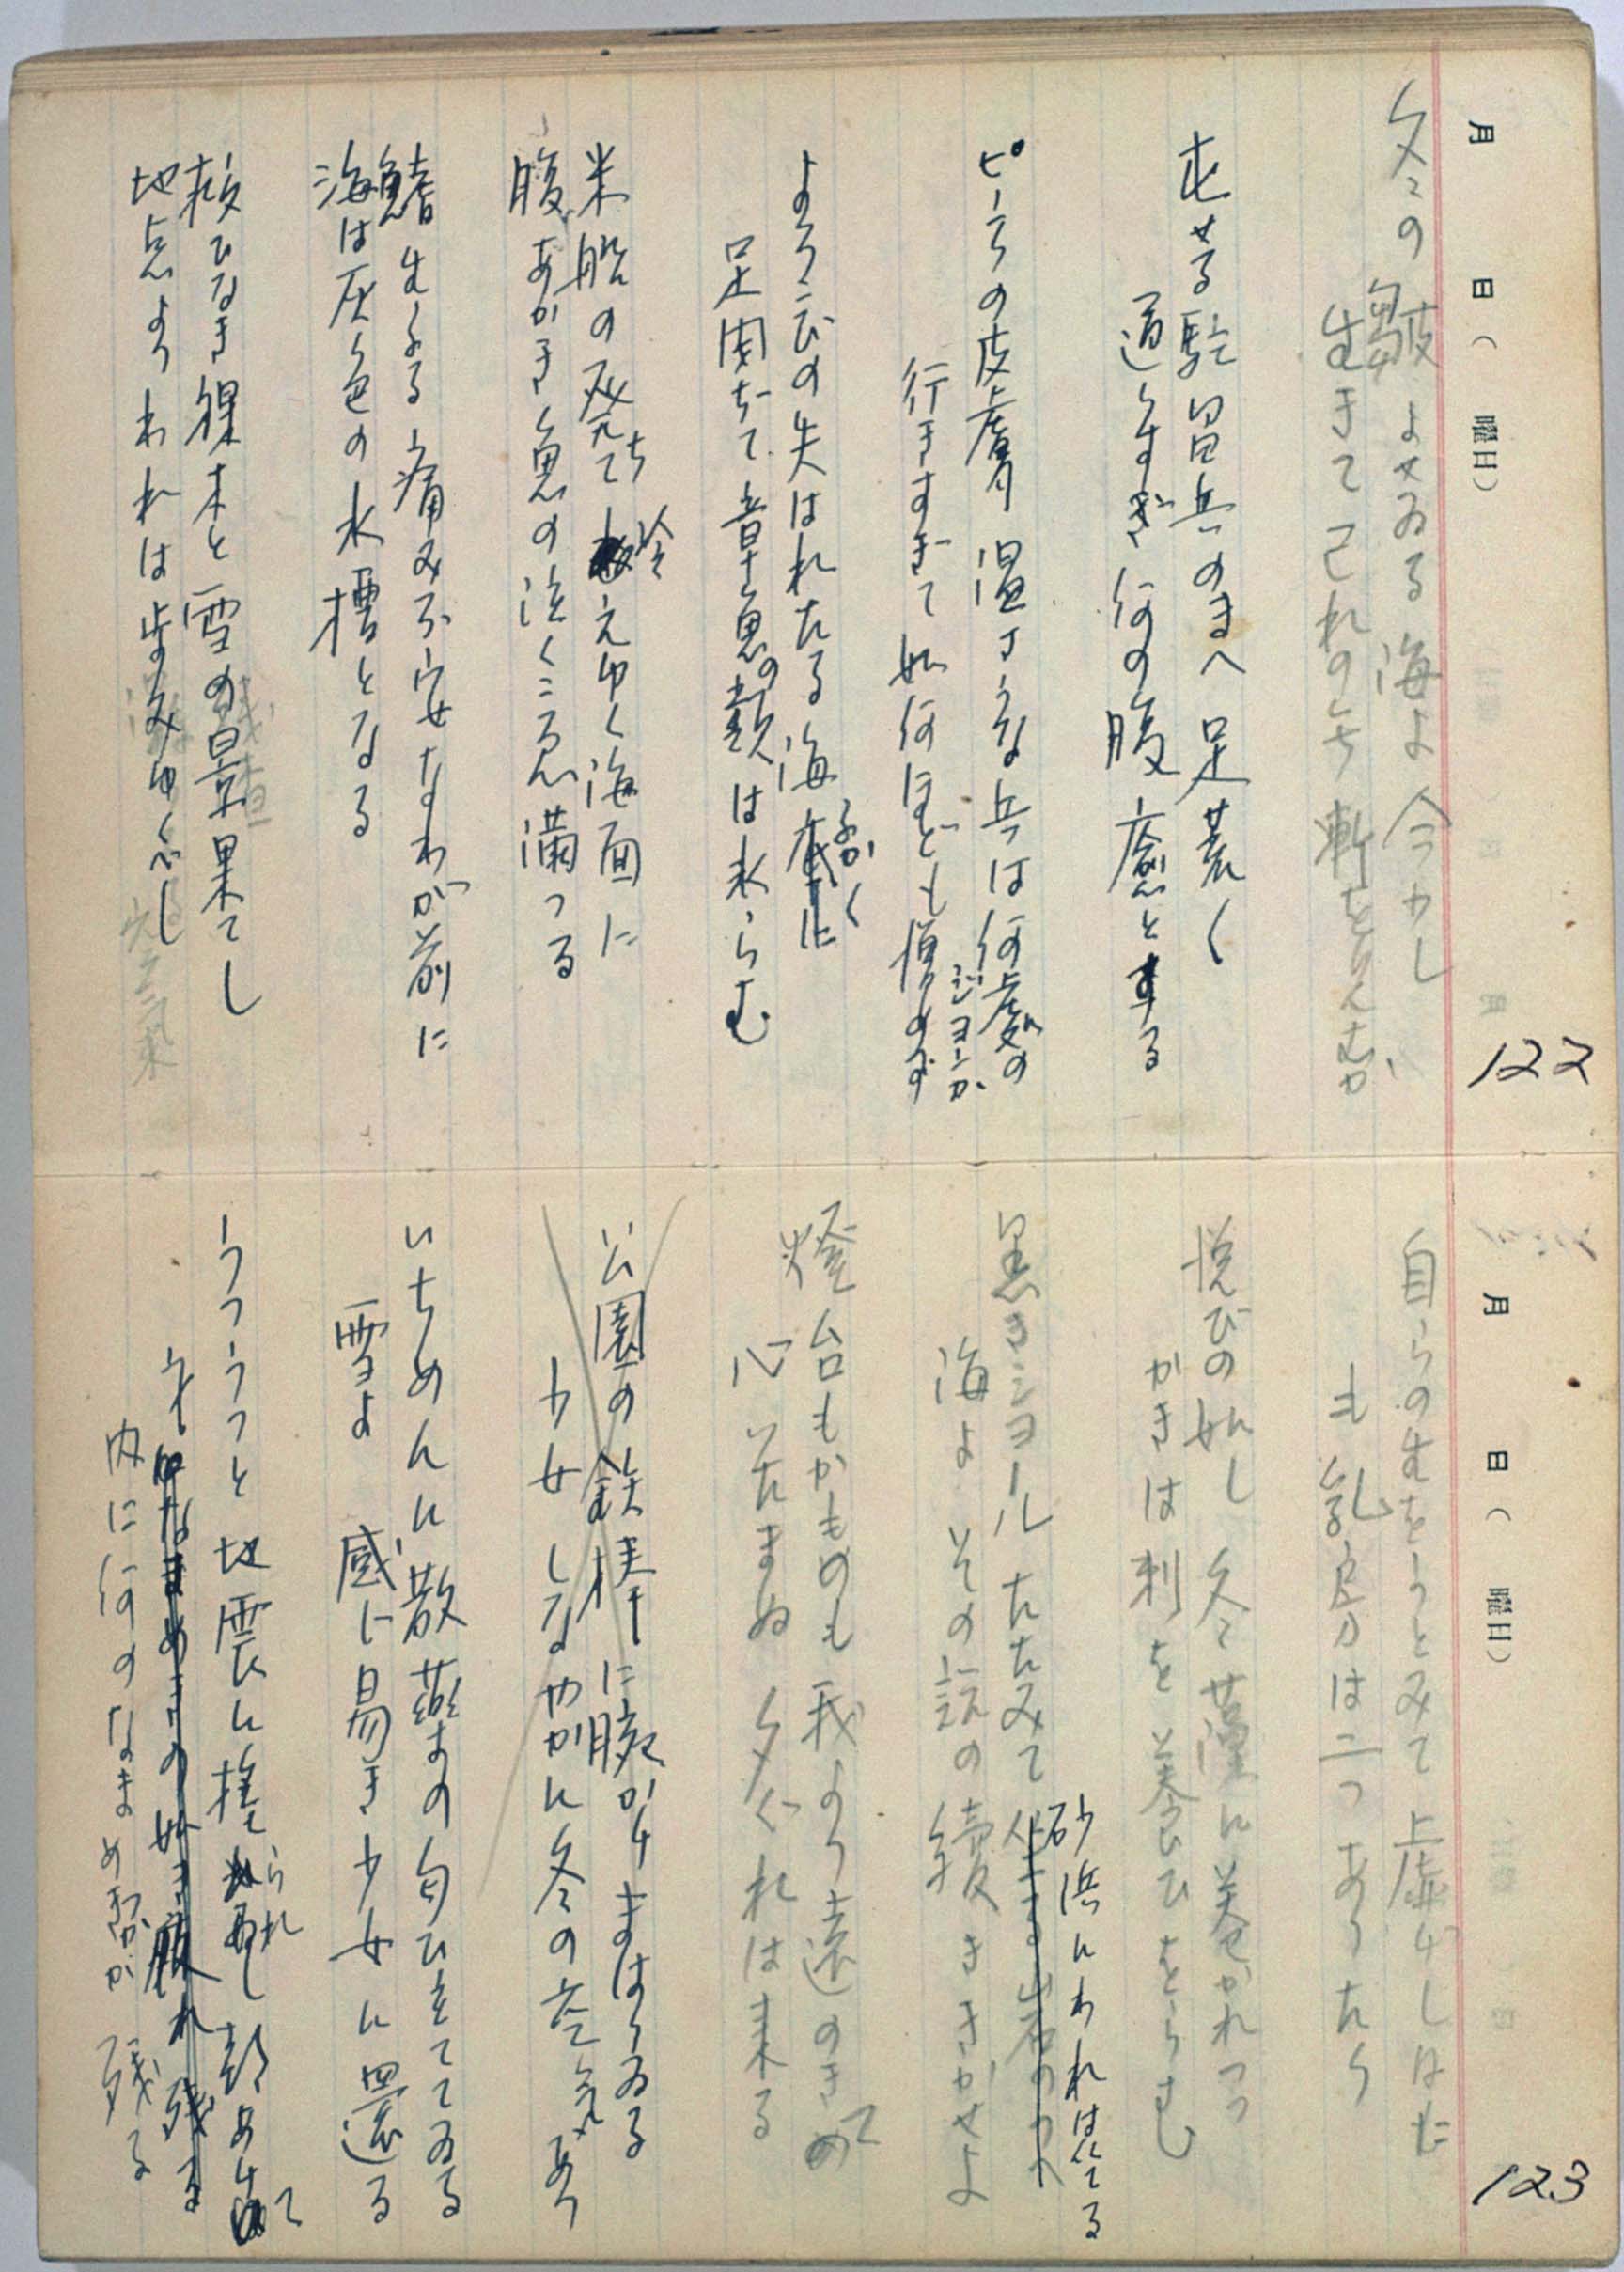 月 日( 曜日)
122
冬の皺よせゐる海よ今少し
生きて己れの無慚を見むか
屯せる駐留兵のまへ足荒く
通りすぎ何の腹癒とする
ピーチの皮膚温さうな兵は何處の
ジヨンか
行きすぎて如何ほども憎めず
よろこびの失はれたる海ふかく
足閉ぢて章魚の類は凍らむ
米船の發ちて冷えゆく海面に
腹あかき魚の泣くこゑ満つる
鰭生ふる痛み不安なわが前に
海は灰色の水槽となる
救ひなき裸木と雪の景果てし
地点よりわれは歩みゆくべし
月 日( 曜日)
123
自らの生をうとみて虐げしはた
も乳房は二つありたり
悦びの如し冬藻に巻かれつつ
かきは刺を養ひをらむ
黒きシヨールたたみて砂浜にわれは佇てる
海よ いその話の續ききかせよ
燈台もかものも我より遠のきて
心いたまぬ夕ぐれは来る
公園の鉄棒に腕かけまはりゐる
少女しなやかに冬の空気あり
いちめんに散薬の匂ひたててゐる
雪よ 感じ易き少女に還る
うつうつと地震に揺られ
内に何のなまめきか 残る